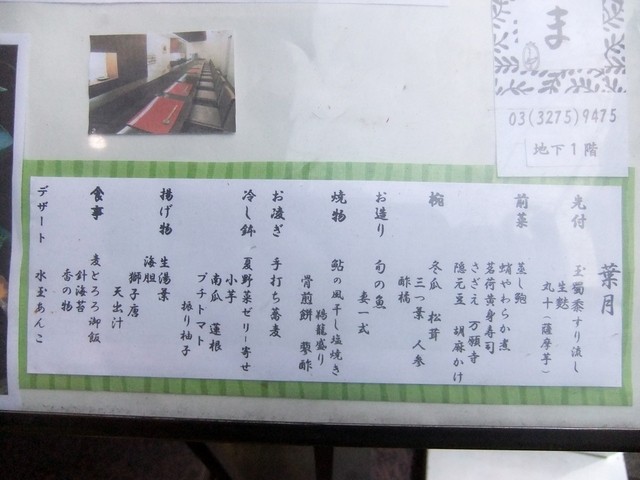 ま
03(3275)9475
地下1階
葉月
先付
玉蜀黍すり流し
生麩
丸十(薩摩芋)
前菜
蒸し鮑
蛸やわらか煮
茗荷黄身寿司
さざえ 万願寺
隠元豆 胡麻かけ
椀
冬瓜 松茸
三つ葉 人参
酢橘
お造り
旬の魚
妻一式
焼物
鮎の風干し塩焼き
鵜籠盛り
骨煎餅 蓼酢
お凌ぎ
手打ち蕎麦
冷し鉢
夏野菜ゼリー寄せ
小芋
南瓜 蓮根
プチトマト
振り柚子
揚げ物
生湯葉
海胆
獅子唐
天出汁
食事
麦とろろ御飯
針海苔
香の物
デザート
水玉あんこ